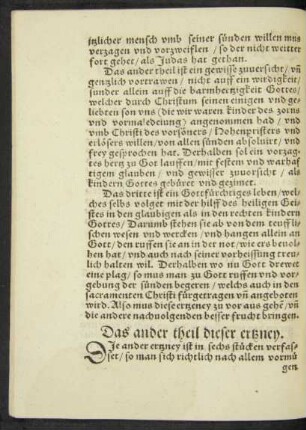 jtzlicher mensch vmb seiner sünden willen müs
verzagen vnd vorzweiflen / so der nicht weitter
fort gehet / als Judas hat gethan.
Das ander theil ist ein gewisse zuuersicht / vñ
gentzlich vortrawen / nicht auff ein wirdigkeit /
sunder allein auff die barmhertzigkeit Gottes /
welcher durch Christum seinen einigen vnd ge
liebten son vns (die wir waren kinder des zorns
vnd vormaledeiung) angenommen hab / vnd
vmb Christi des vorsöners / Hohenpristers vnd
erlösers willen / von allen sünden absoluirt / vnd
frey gesprochen hat. Derhalben sol ein vorzag-
tes hertz zu Got lauffen / mit festem vnd warhaf
tigem glauben / vnd gewisser zuuorsicht / als
kindern Gottes gebüret vnd gezimet.
Das dritte ist ein Gottfürchtiges leben / wel-
ches selbs volget mit der hilff des heiligen Gei-
stes in den glaubigen als in den rechten kindern
Gottes / Darumb fliehen sie ab von dem teuffli-
schen wesen vnd wercken / vnd hangen allein an
Gott / den ruffen sie an in der not / wie ers beuol-
hen hat / vnd auch nach seiner vorheissung treu-
lich halten wil. Derhalben wo nu Gott drewet
eine plag / so mus man zu Gott ruffen vnd vor-
gebung der sünden begeren / welchs auch in den
sacramenten Christi fürgetragen vñ angeboten
wird. Also mus diese ertzney zu vor aus gehe / vñ
die andere nachuolgenden besser frucht bringen.
Das ander theil dieser ertzney.
Die ander ertzney ist in sechs stücken verfas-
set / so man sich richtlich nach allem vormü
gen